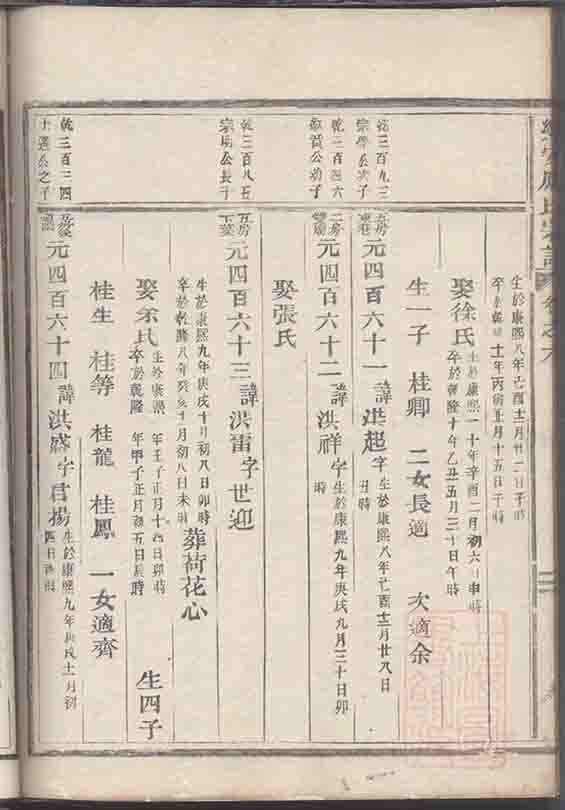 生於康熙八年己酉十二月廿二日子時
卒於乾隆十一年丙寅五月十五日子時
娶徐氏
生於康熙二十年辛酉二月初六日申時
卒於乾隆十年乙丑五月三十日午時
生一子 桂卿 二女長適 次適余
乾三百九三
宗學公次子
元四百六十一 諱洪超字
生於康熙八年己酉十二月廿八日
丑時
乾三百四六
公幼子
二房
元四百六十二 諱洪祥字
生於康熙九年庚戌九月三十日卯
時
娶張氏
乾三百八五
宗 公長子
五房
下葉
元四百六十三 諱洪雷字世迎
生於康熙九年庚戌十月初八日卯時
卒於乾隆八年癸亥十月初八日未時
葬荷花心
娶余氏
生於康熙 年壬子正月十四日卯時
卒於乾隆 年甲子正月初五日辰時
生四子
桂生 桂等 桂龍 桂鳳 一女適齊
乾三百三四
士選公之子
元四百六十四 諱洪盛字君揚
生於康熙九年庚戌十一月初
四日酉時